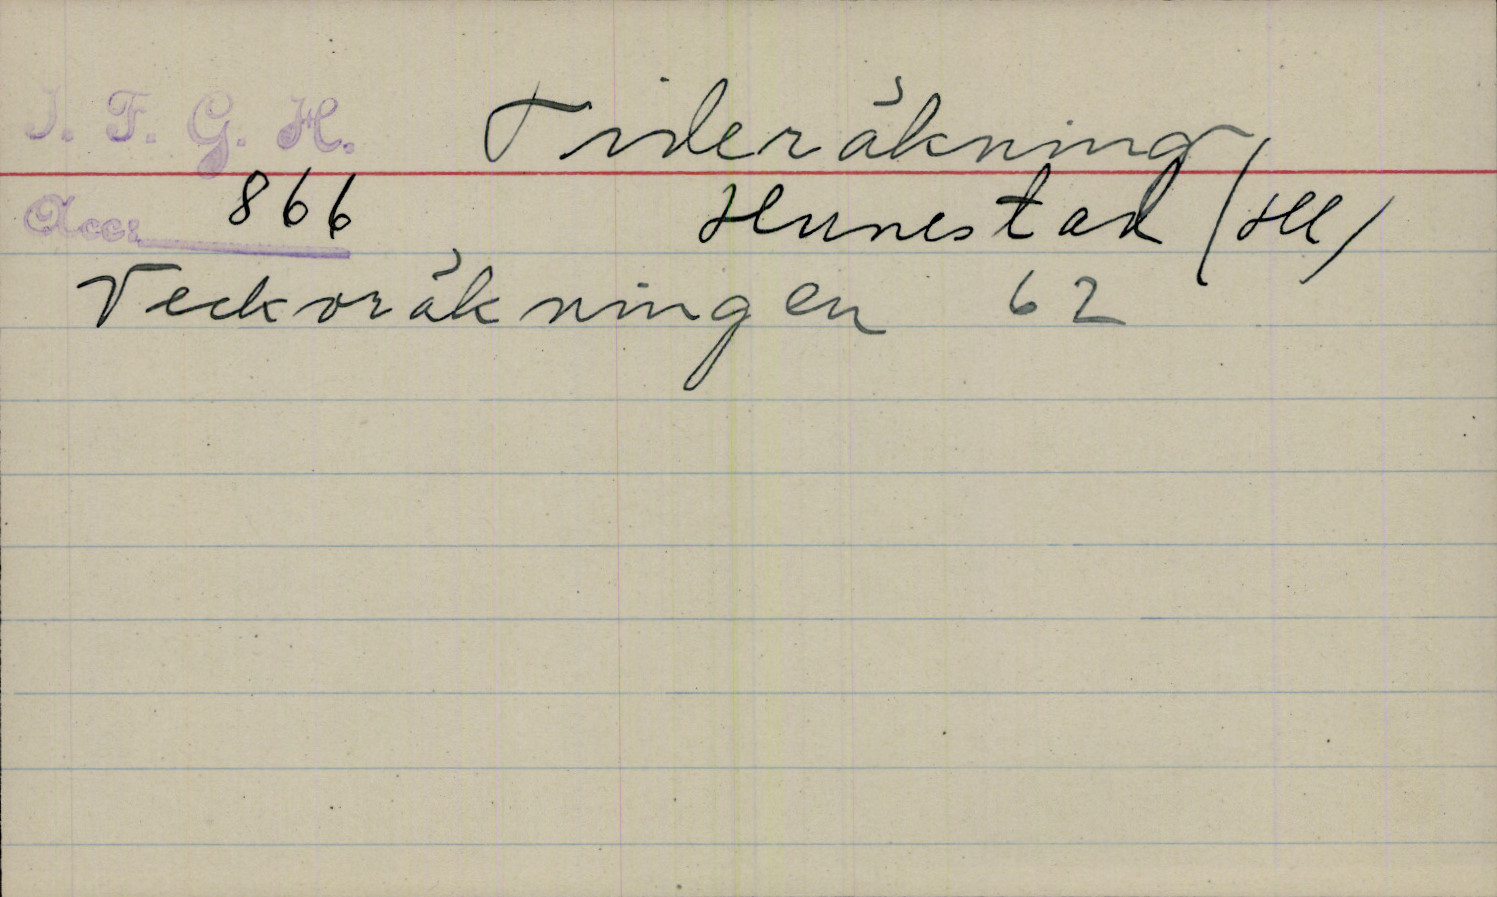 I. F. G. H. Tideräkning
Acc: 866 Hunestad (Hl)
Veckoräkningen 62